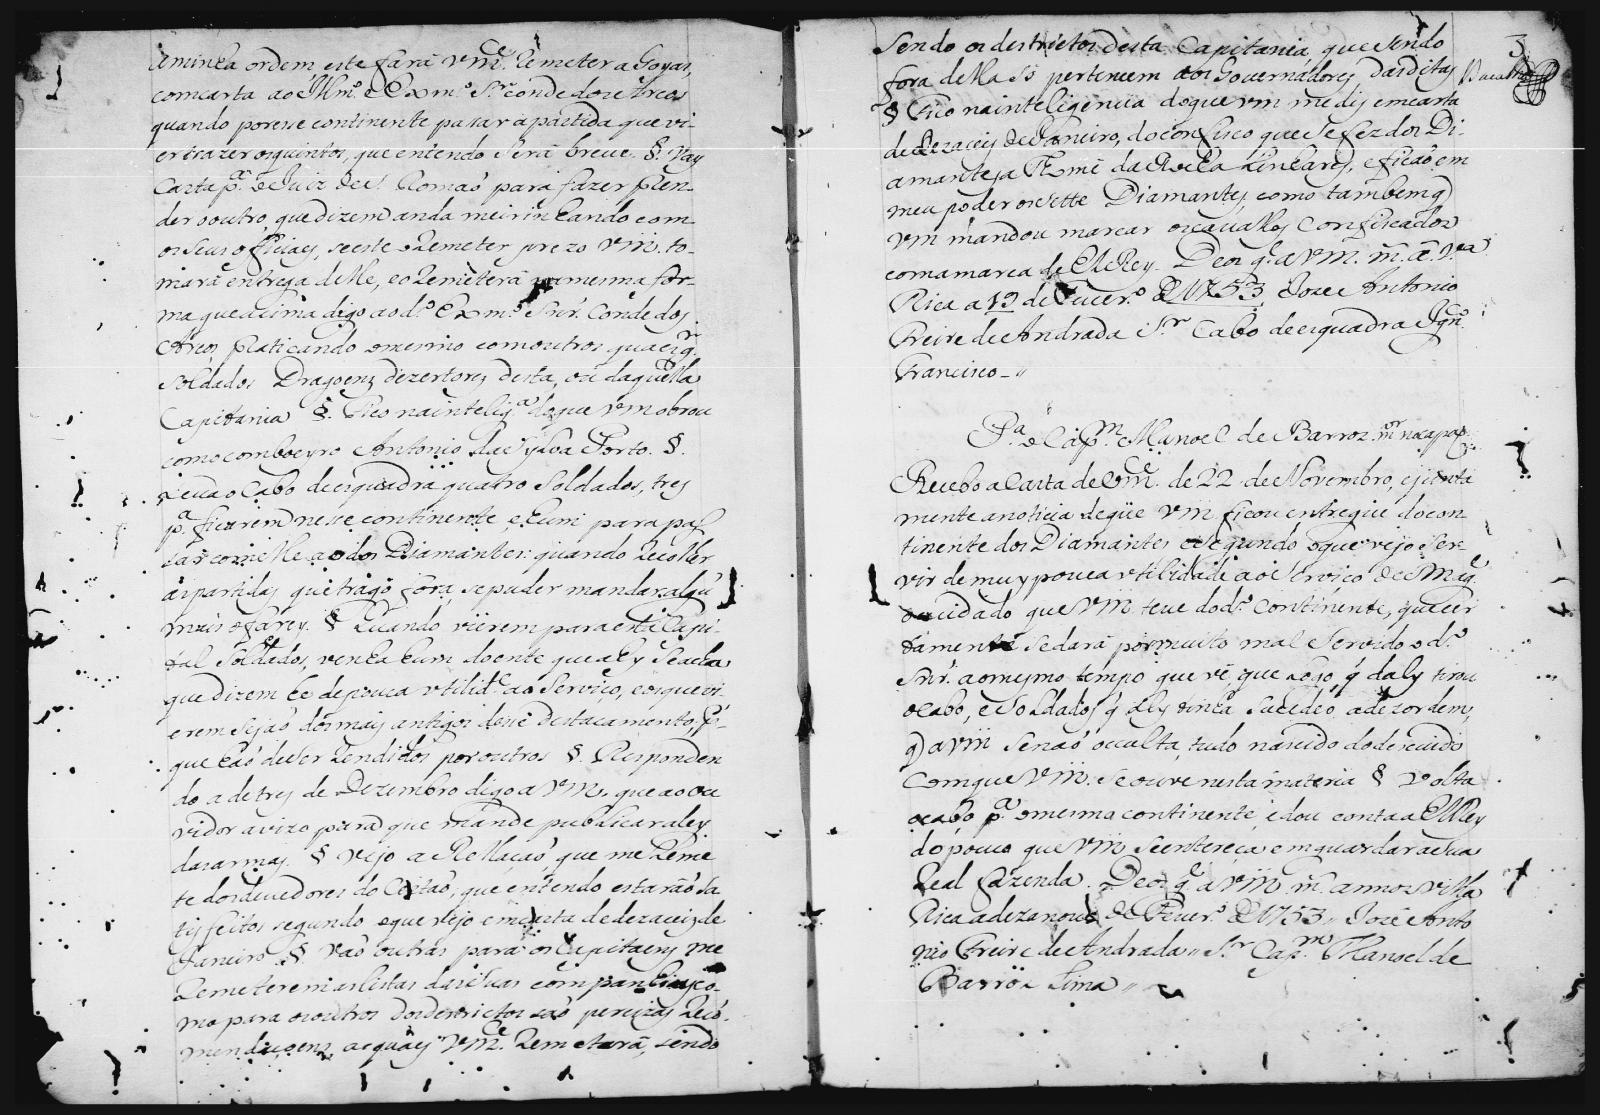 a minha ordem este fará vm.ce Remeter a Goyas,
com carta ao Ill.mo e Ex.mo S.r conde dos Arcos
quando por esse continente pasar a partida que vi-
er trazer os quintos, que entendo será breve. §. Vay
Carta p.a o Juiz de S. Romaõ para fazer pren-
der o outro, que dizem anda meirinhando com
os seus oficiaes, se este o Remeter prezo Vm. to-
mará entrega delle, e o Remeterá na mesma for-
ma que acima digo ao d.o Ex.mo Snr. Conde dos
Arcos, praticando o mesmo com outros quaesq.r
soldados Dragoens dezertores desta, ou daquella
Capitania §. Fico na intelig.a do que Vm obrou
como comboeyro Antonio da Sylva Porto. §.
Leva o Cabo de esquadra quatro Soldados, tres
p.a ficarem nesse continente, e hum para pas
sar com elle ao dos Diamantes: quando Recolher
as partidas que trago fora, se puder mandar algũ
mais o farey. § Quando vierem para esta Capi-
tal Soldados, venha hum doente que ahy se acha
que dizem he de pouca utilid.e ao Serviço, e os que vi-
erem sejaõ dos mais antigos desse destacamento, p.
que haõ de ser Rendidos por outros §. Responden
do a de tres de Dezembro digo a Vm. que ao ou
vidor avizo para que mande publicar a ley
das armas. § Vejo a Rellaçaõ, que me Reme
te dos devedores do Certaõ, que entendo estaraõ sa
tisfeitos segundo o que vejo em carta de dezaceis de
Janeiro. §. Vaõ outras para os Capitaens me
Remeterem as listas das suas companhias, co-
mo para os outros dos destrictos saõ percizas Reco-
mendaçoens, as quaes Vm.ce Remeterá, sendo
3
sendo os destrictos desta Capitania, que sendo
fora della só pertencem aos Governadores das ditas
§ Fico na inteligencia do que vm me diz em carta
de dezaceis de Janeiro, do confisco que se fez dos Di-
amantes a Thomé da Rocha Linhares, e ficaõ em
meu poder os sette Diamantes, como tambem q
vm mandou marcar os cavallos confiscados
com a marca de ElRey. Deos g.e a Vm. m. a. V.a
Rica a 19 de Fever.o de 1753, Joze Antonio
Freire de Andrada S.r Cabo de esquadra Ign.co
Francisco //
P.a o Cap.m Manoel de Barros
Recebo a Carta de Vm.ce de 22 de Novembro, e junta
mente a noticia de que Vm ficou entregue do con-
tinente dos Diamantes e segundo o que vejo ser-
vir de muy pouca utilidade ao Serviço de S. Mag.e
o cuidado que Vm teve do d.o Continente, que cer
tamente se dará por muito mal servido o d.o
Snr. ao mesmo tempo que vê, que logo q daly tirou
o cabo, e Soldados q aly tinha sucedeo a dezordem,
q a Vm senaõ occulta, tudo nascido do descuido
com que Vm. se ouve nesta materia § Volta
o cabo p.a o mesmo continente, e dou conta a ElRey
do pouco que Vm se entereça em guardar a sua
Real fazenda. Deos g.e a Vm. m. annos Villa
Rica a dezanove de Fever.o de 1753 // José Anto
nio Freire de Andrada // S.r Cap.m Manoel de
Barros Lima //